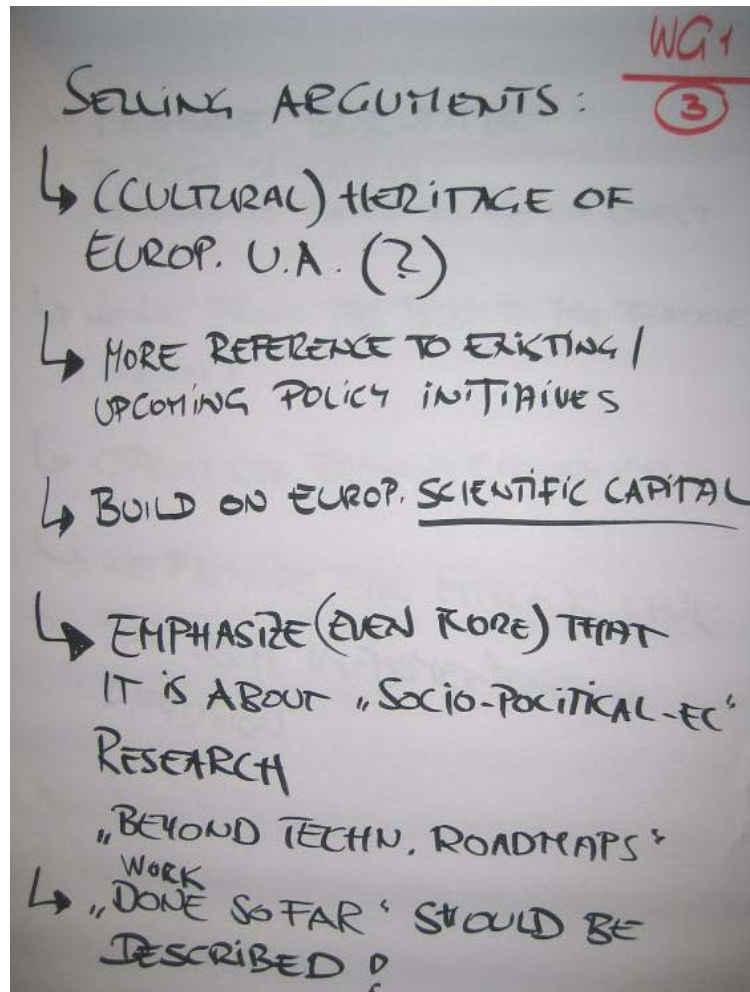 WG1
3
SELLING ARGUMENTS:
↳ (CULTURAL) HERITAGE OF
EUROP. U.A. (?)
↳ MORE REFERENCE TO EXISTING /
UPCOMING POLICY INITIAIVES
↳ BUILD ON EUROP. SCIENTIFIC CAPITAL
↳ EMPHASIZE (EVEN MORE) THAT
IT IS ABOUT „SOCIO-POLITICAL-EC“
RESEARCH
„BEYOND TECHN. ROADMAPS“
WORK
↳ „DONE SO FAR“ SHOULD BE
DESCRIBED !